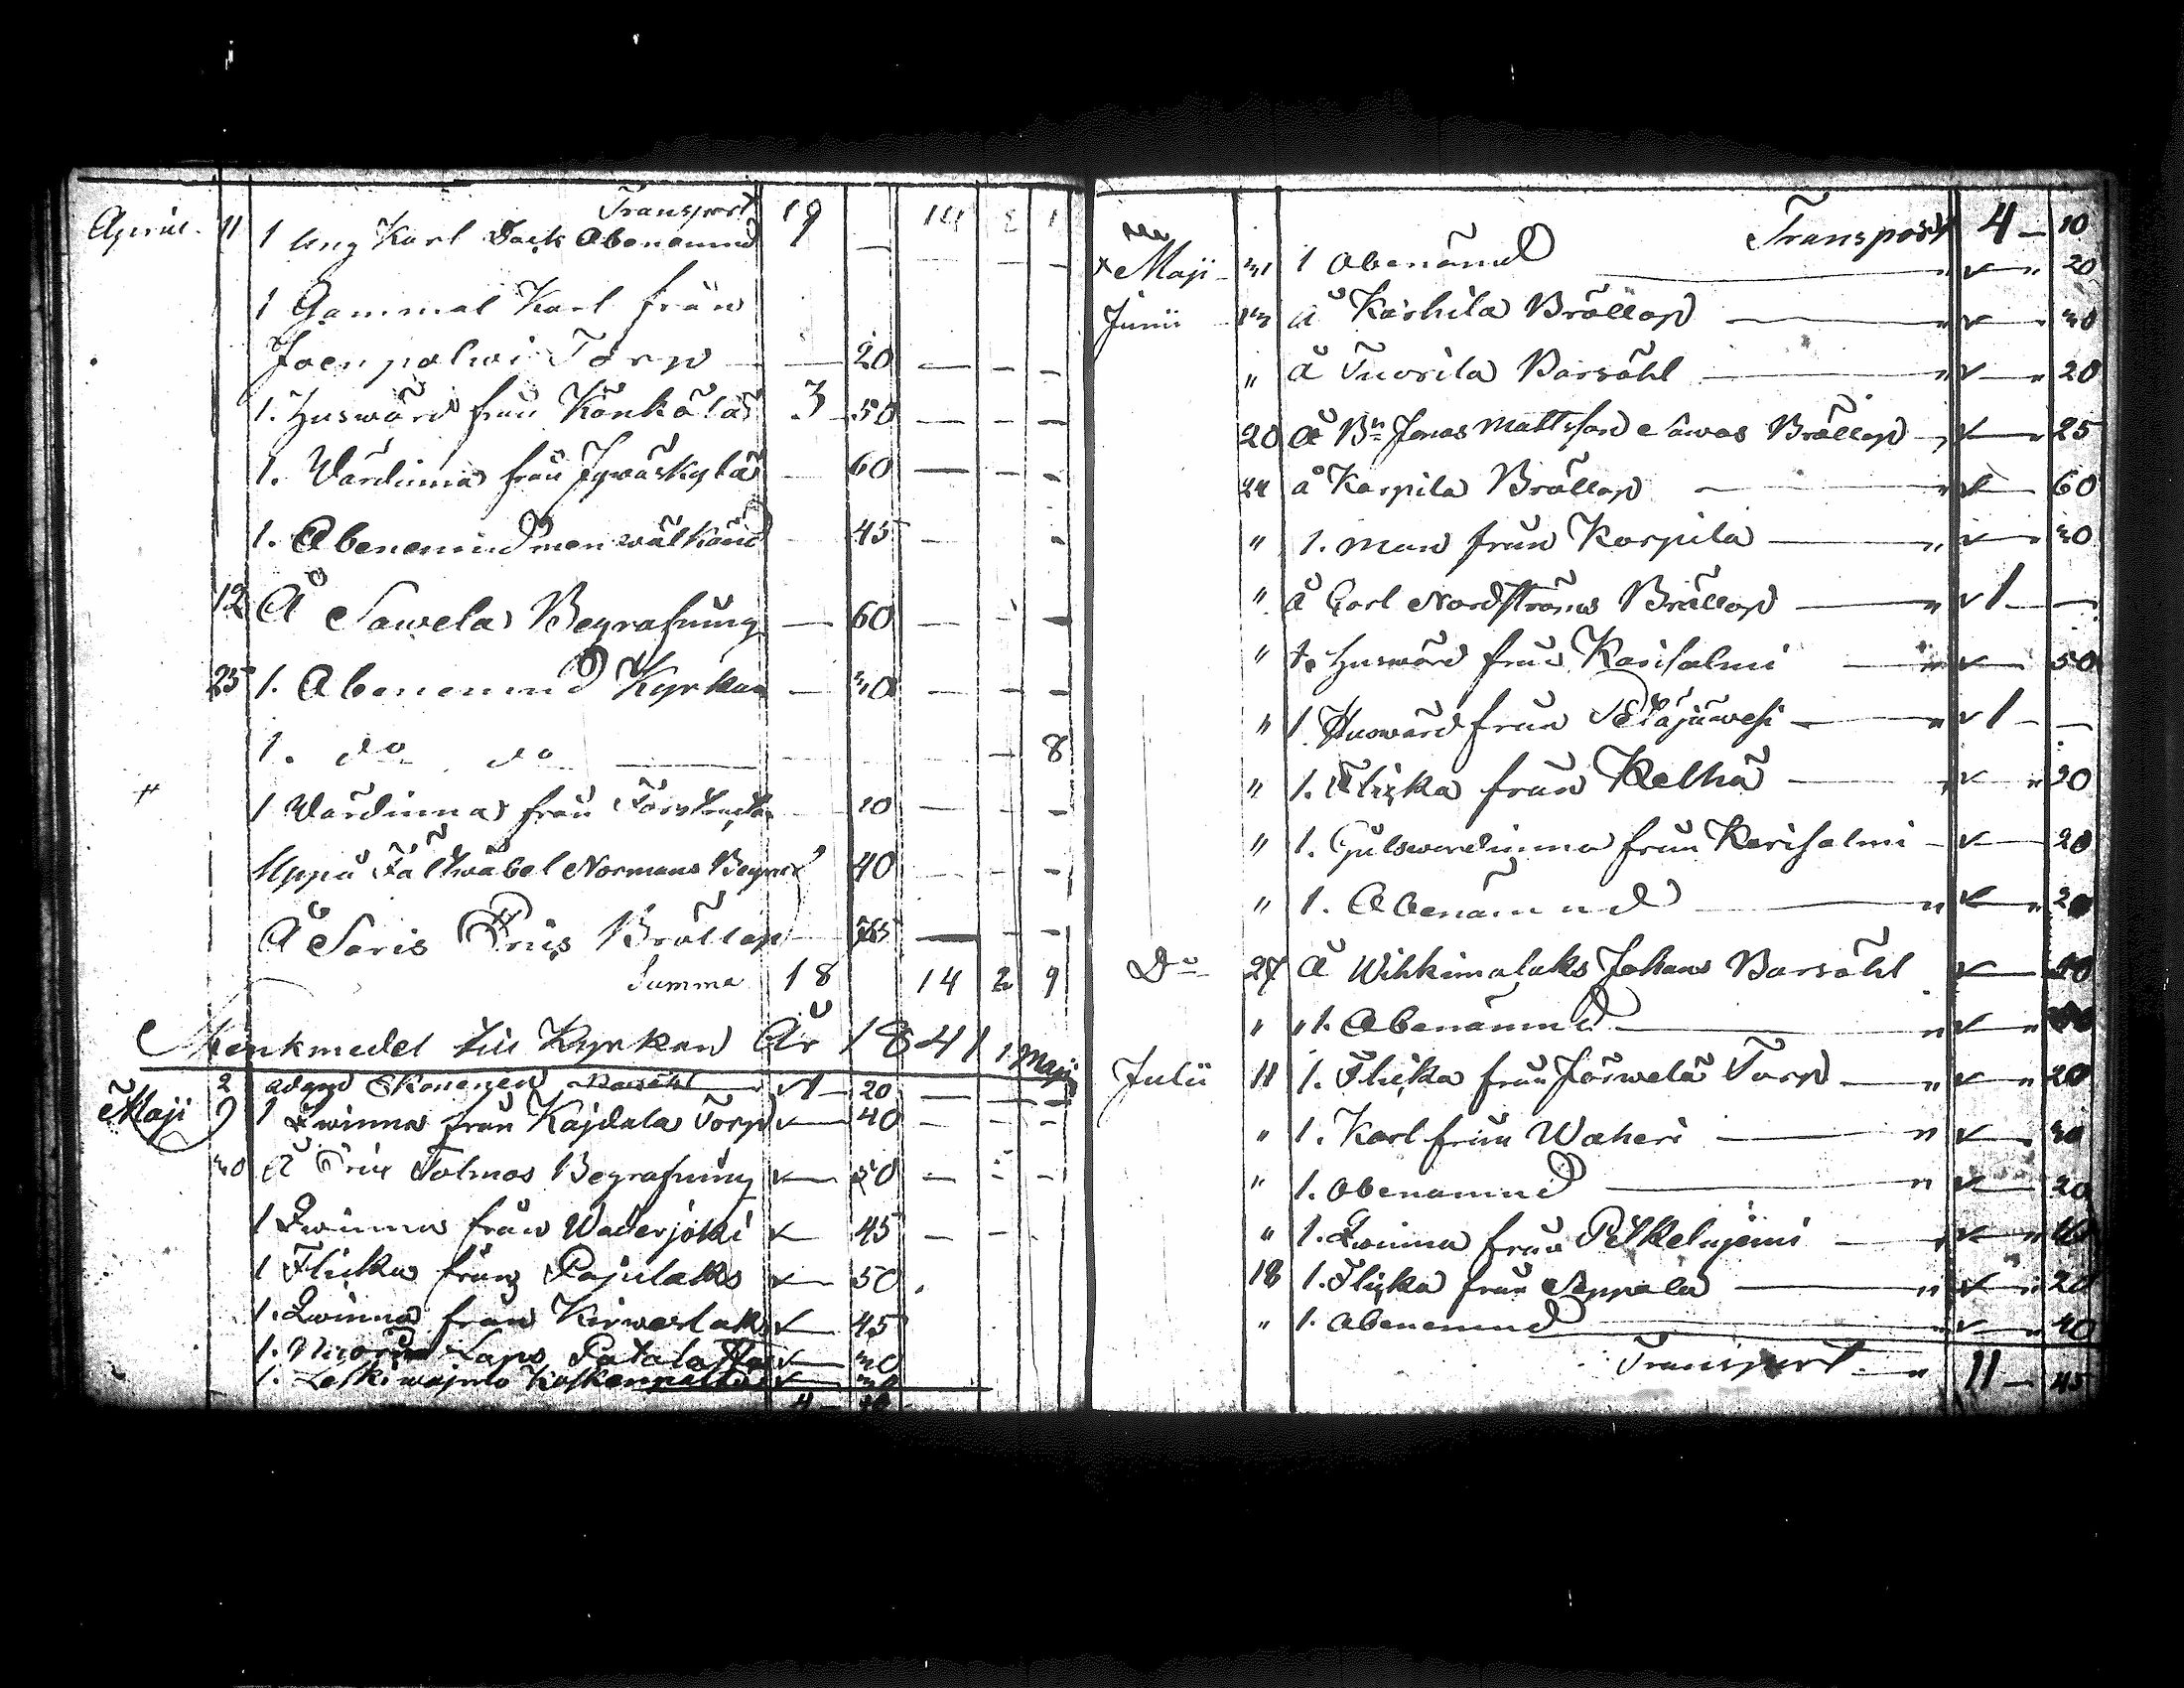 Transport 19 — 14 2 1
April. 11 1 ung Karl Sack Obenämnd
1 Gammal Karl från
Joenpolwi Torp — 20 — — —
1. Huswärd från Könkölä 3 50 — — —
1. Värdinna från Jywäskylä — 60 — — —
1. Obenämnd men wälkänd — 45 — —
12 Å Sawela Begrafning — 60 — — —
25 1. Obenemnd Kyrkan — 30 — — —
1. do do — 8
1 Värdinna från — 20 — — —
Uppå Fältwäbel Normans Begraf 40 — — —
Å Saris Eriks Bröllop — — — —
Summa 18 14 2 9
Skenkmedel till Kyrkan År 1841 1 Maji
2 Skonengen v1 — 20 — — —
Maji 9 1 Qwinna från Kajdala Torp v — 40 — — —
30 Å Eric Tolmos Begrafning v — 50 — — —
1 Qwinna från Waderjoki v — 45 — —
1 Flicka från Pajulaks v — 50
1. Qwinna från Kirweslaks v — 45
1. Nuori Laps Patalasta v — 30
1. Leski wajmo v — 30
4 — 10
Transport 4 — 10
Maji 31 1 Obenämnd — " v — " 20
Junii 13 å Karhila Bröllop — " v — " 30
" å Tuorila Barsöhl — " v — " 20
20 Å Bn Jonas Mattsson Sawas Bröllop " v — " 25
24 å Korpila Bröllop — " v — 60
" 1. man från Korpila — " v — " 30
" å Carl Nordströms Bröllop — " v 1 — —
" 1. Huswärd från Karisalmi — " v — 50
" 1. Huswärd från Petäjäwesi — " v 1 — —
" 1. Flicka från Kelhä — " v — " 20
" 1. Gulswärdinna från Karisalmi — v — 20
" 1. Obenämnd — " v — " 20
Do 27 Å Wihkimalaks Johans Barsöhl v —
" " 1. Obenämnd — " v — "
Julii 11 1. Flicka från Jörwelä Torp — " v — " 20
" 1. Karl från Waheri — " v — 30
" 1. Obenämnd — " v — 20
" 1. Qwinna från Petkelnjemi — " v — "
18 1. Flicka från Seppälä — " v — " 20
" 1. Obenemnd — " v — " 40
Transport — " 11 — 45